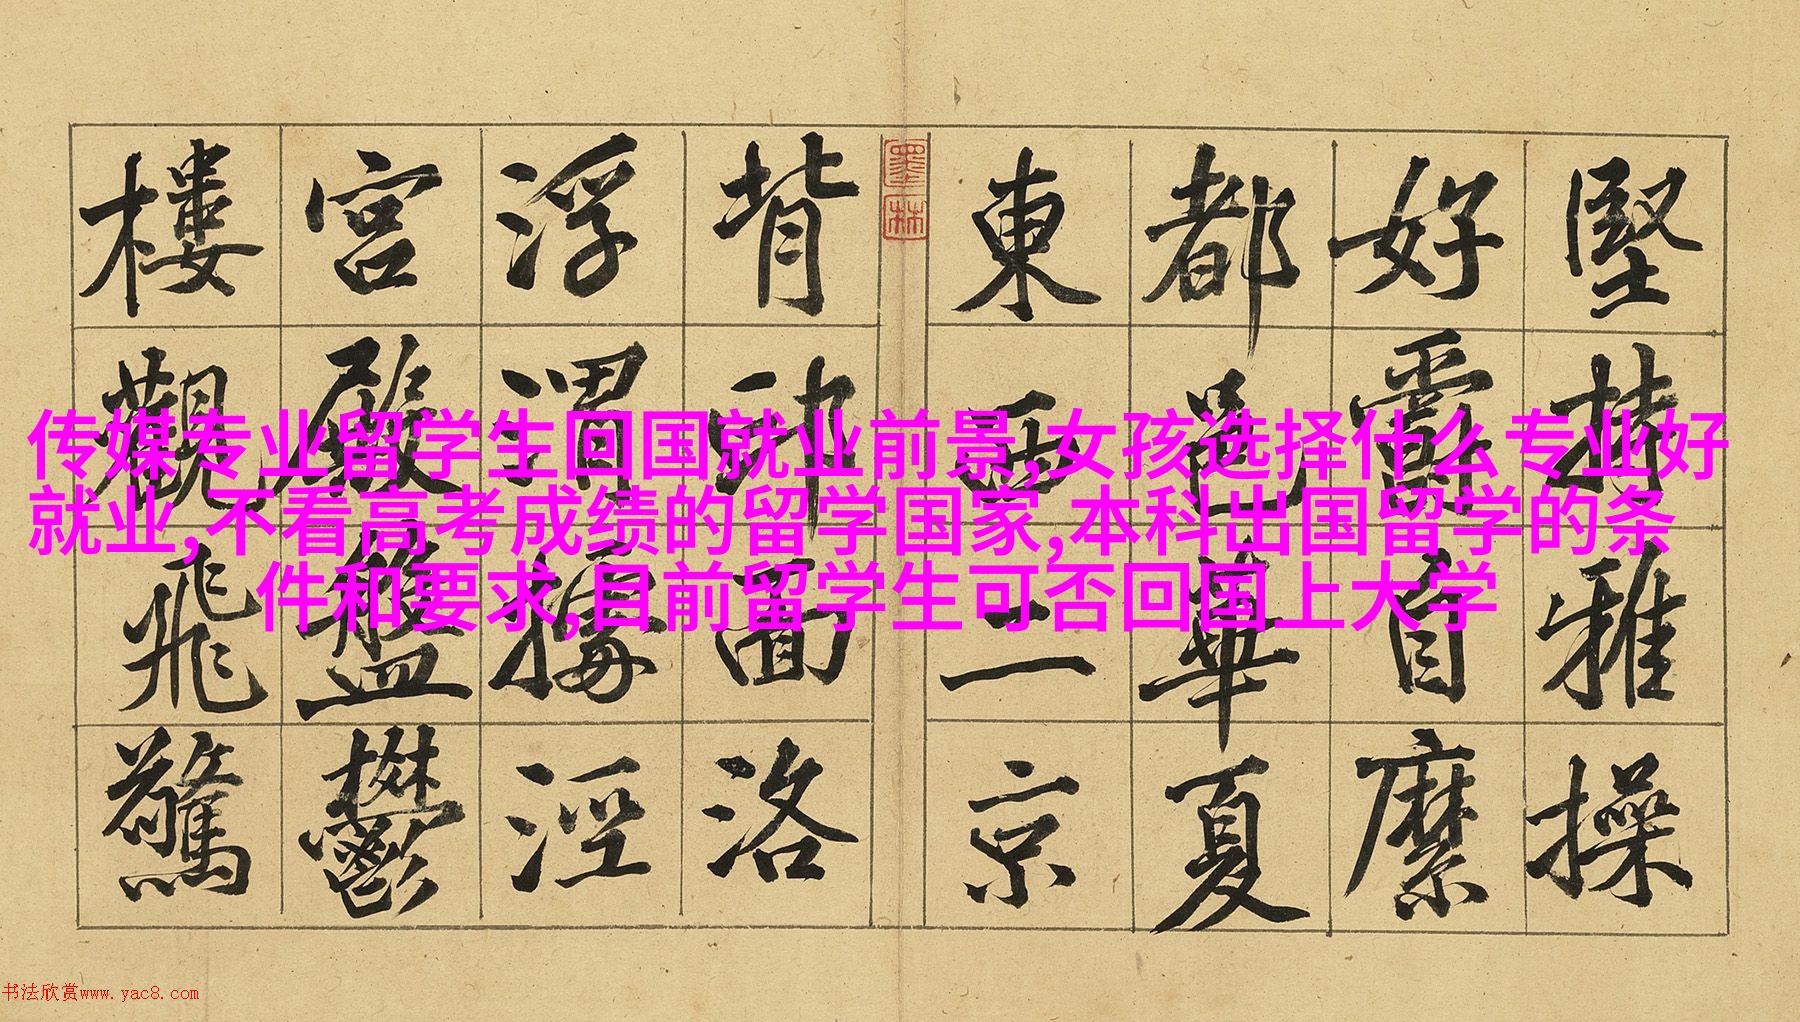 堅持雅操
好爵自縻
都邑華夏
東西二京
墨林
背邙面洛
浮渭據涇
宮殿盤鬱
樓觀飛驚
传媒专业留学生回国就业前景,女孩选择什么专业好
就业,不看高考成绩的留学国家,本科出国留学的条
件和要求,目前留学生可否回国上大学
书法欣赏www.yac8.com